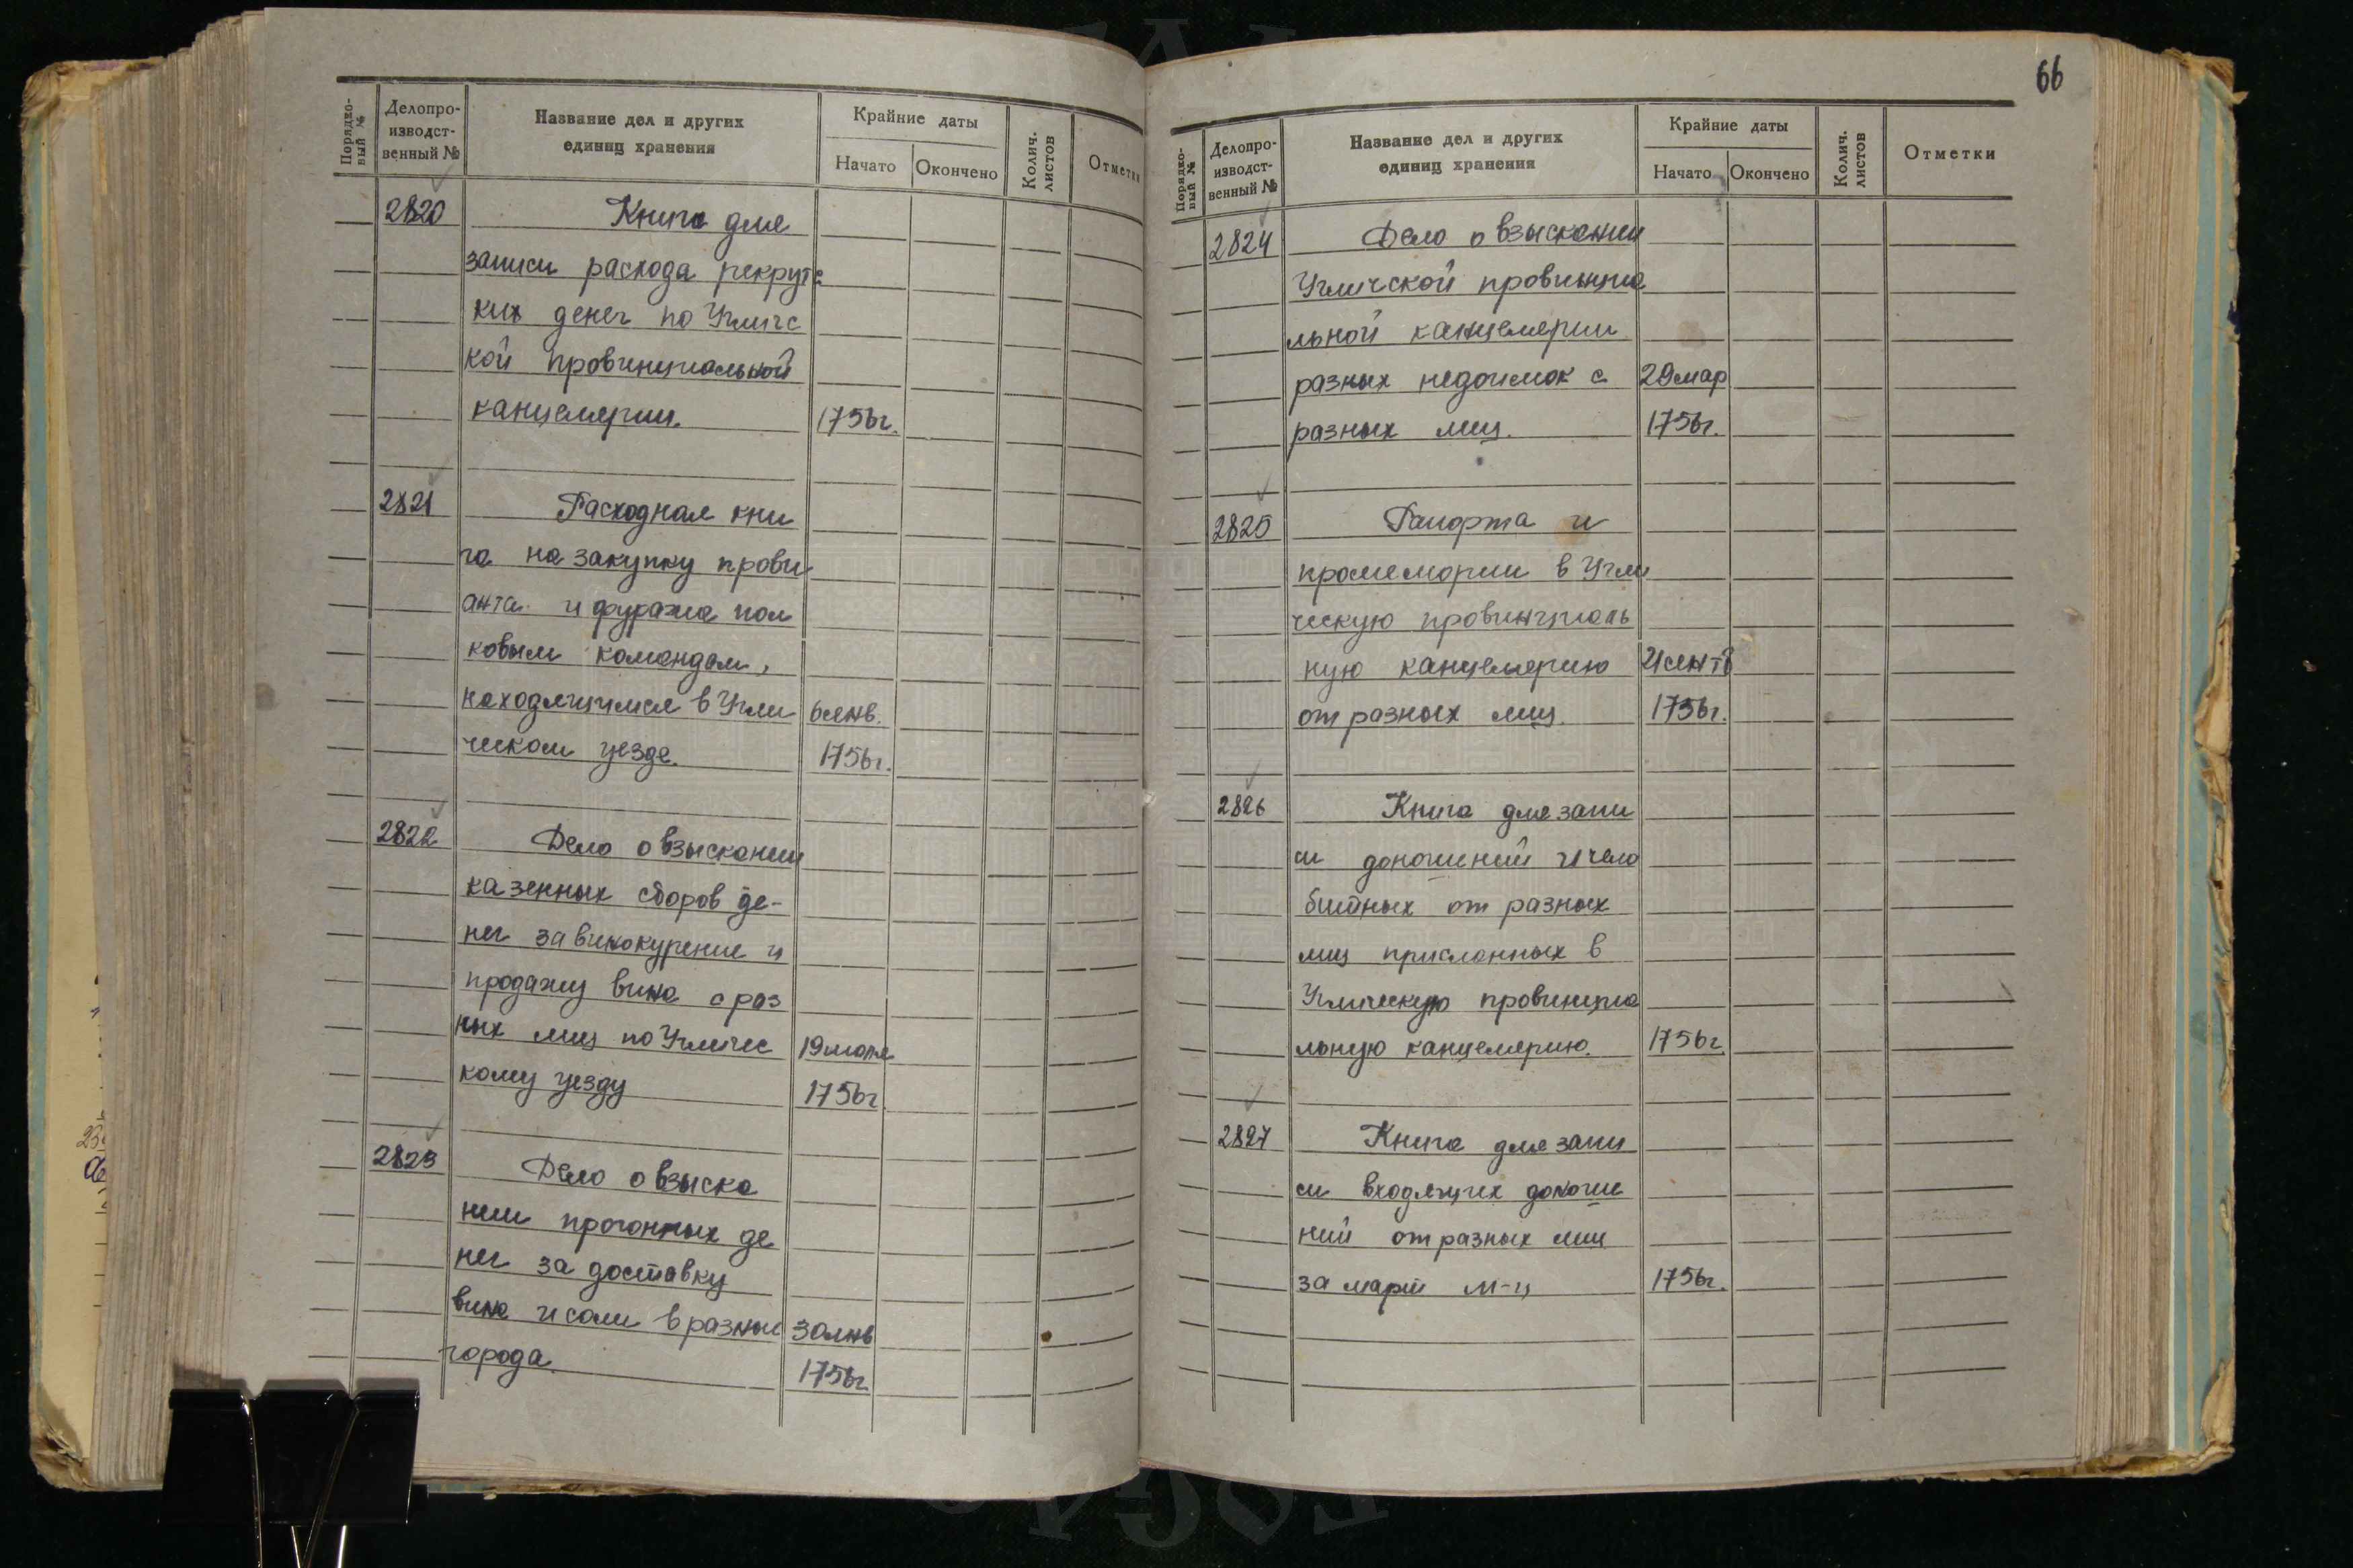 66
Порядко-
вый №
Делопро-
изводст-
венный №
Название дел и других
единиц хранения
Крайние даты
Начато
Окончено
Колич.
листов
Отметки
2820
Книга для
записи расхода рекрутс
ких денег по Угличс
кой провинциальной
канцелярии. 1756г.
2821
Расходная кни
га на закупку прови
анта и фуража пол
ковым командам,
находящимся в Угли 6 янв.
ческом уезде. 1756г.
2822
Дело о взыскании
казенных сборов де-
нег за винокурение и
продажу вина с раз
ных лиц по Угличес 19 июля
кому уезду 1756г
2823
Дело о взыска
нии прогонных де
нег за доставку
вина и соли в разные 30 янв
города. 1756г.
Порядко-
вый №
Делопро-
изводст-
венный №
Название дел и других
единиц хранения
Крайние даты
Начато
Окончено
Колич.
листов
Отметки
2824
Дело о взыскании
Угличской провинциа
льной канцелярии
разных недоимок с 29 мар
разных лиц. 1756г.
2825
Рапорта и
промемории в Угли
ческую провинциаль
ную канцелярию 21 сентб
от разных лиц. 1756г.
2826
Книга для запи
си доношений и чело
битных от разных
лиц присланных в
Угличскую провинциа
льную канцелярию. 1756г.
2827
Книга для запи
си входящих доноше
ний от разных лиц
за март м-ц 1756г.